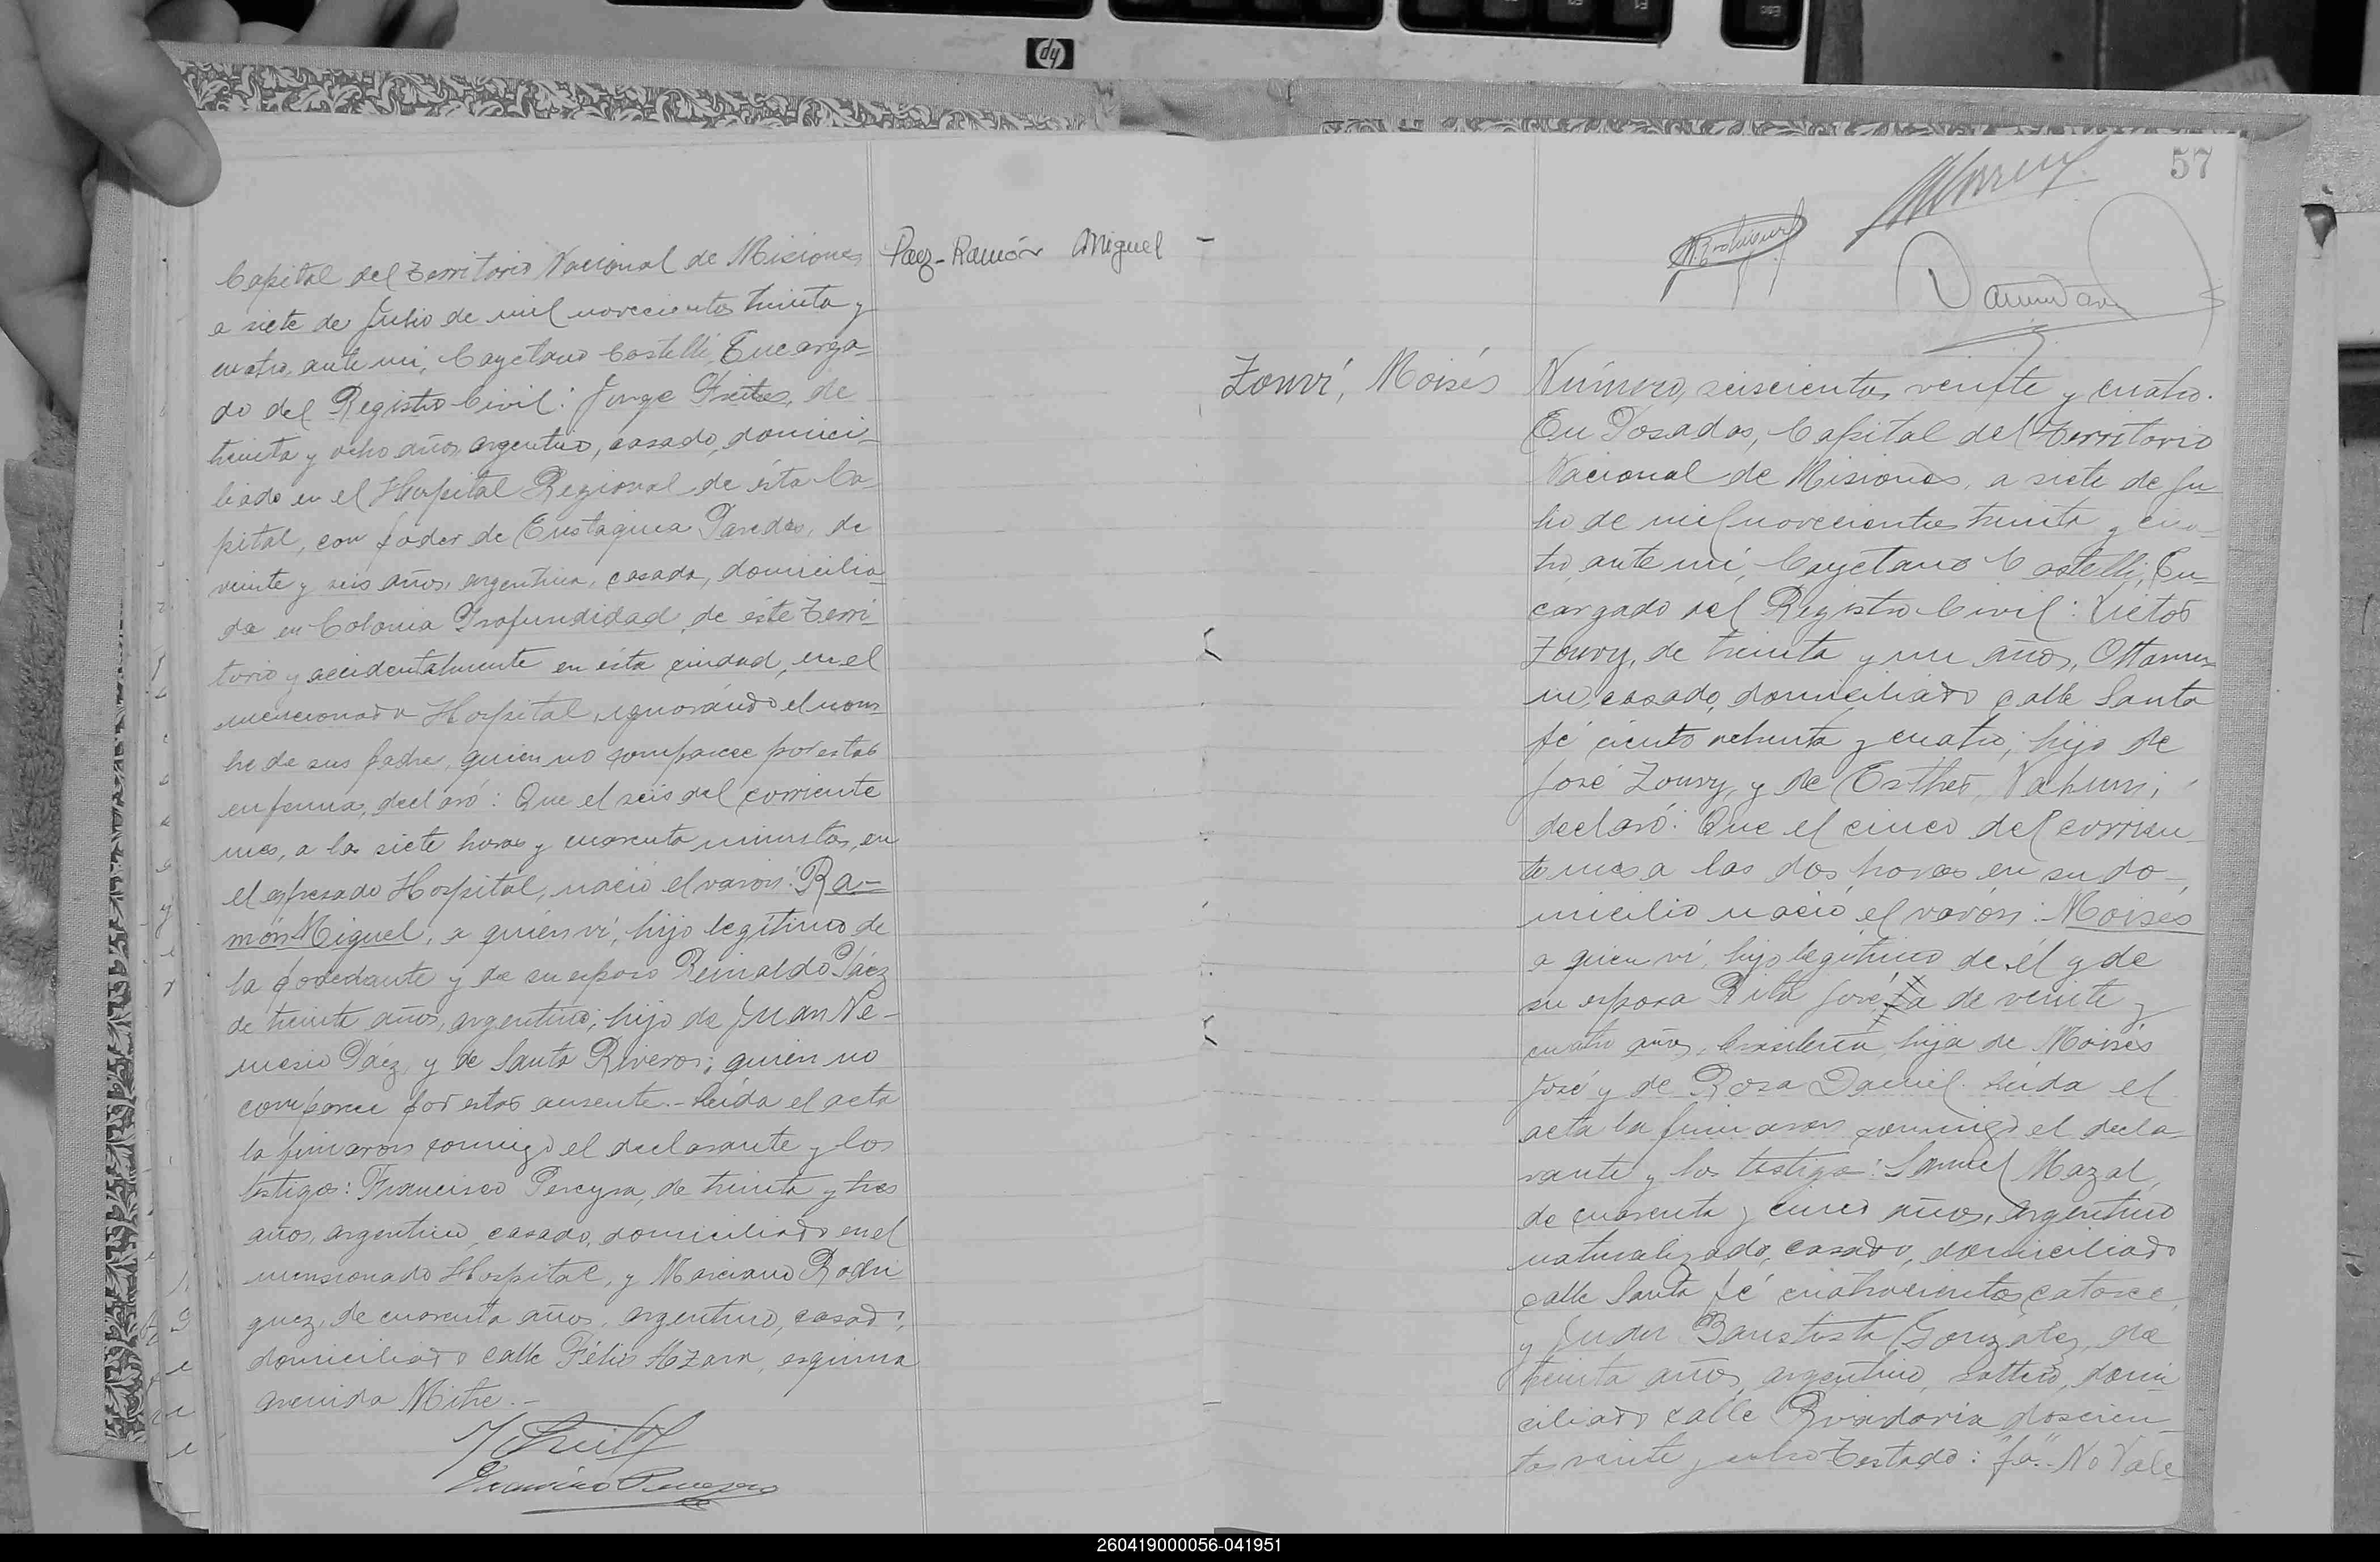 Capital del Territorio Nacional de Misiones
a siete de Julio de mil novecientos treinta y
cuatro, ante mi, Cayetano Costelli, Encarga-
do del Registro Civil: Jorge Freites, de
treinta y ocho años, argentino, casado, domici-
liado en el Hospital Regional de ésta Ca-
pital, con poder de Eustaquia Paredes, de
veinte y seis años, argentina, casada, domicilia-
da en Colonia Profundidad, de éste Terri-
torio y accidentalmente en ésta ciudad, en el
mencionado Hospital, ignorándo el nom-
bre de sus padres, quien no comparece por estar
enferma, declaró: Que el seis del corriente
mes, a las siete horas y cuarenta minutos, en
el expresado Hospital, nació el varón: Ra-
món Miguel, a quién ví, hijo legítimo de
la poderdante y de su esposo Reinaldo Páez
de treinta años, argentino; hijo de Juan Ne-
mesio Páez, y de Santa Riveros; quién no
comparece por estar ausente.- Leída el acta
la firmaron conmigo el declarante y los
testigos: Francisco Pereyra, de treinta y tres
años, argentino, casado, domiciliado en el
mensionado Hospital, y Marciano Rodri
guez, de cuarenta años, argentino, casado,
domiciliado calle Félix Azara, esquina
avenida Mitre.-
Paez - Ramón Miguel -
57
Zouvi, Moisés
Número, seiscientos veinte y cuatro.
En Posadas, Capital del Territorio
Nacional de Misiones, a siete de Ju-
lio de mil novecientos treinta y cua-
tro, ante mí, Cayetano Costelli, En-
cargado del Registro Civil: Victor
Zouvy, de treinta y un años, Otoma-
no, casado, domiciliado calle Santa
fé ciento ochenta y cuatro; hijo de
José Zouvy, y de Esther Nahum;
declaró: Que el cinco del corrien-
te mes a las dos horas en su do-
micilio nació el varón: Moisés
a quien ví, hijo legítimo de él y de
su esposa Rita José fa de veinte y
cuatro años, brasilera, hija de Moisés
José y de Rosa Daniel. Leída el
acta la firmaron conmigo el decla-
rante y los testigos: Samuel Mazal,
de cuarenta y cinco años, argentino
naturalizado, casado, domiciliado
calle Santa fé cuatrocientos catorce,
y Juan Baustista González, de
treinta años, argentino, soltero, domi
ciliado calle Rivadavia doscien-
tos veinte y ocho Testado: "fa". No Vale
260419000056-041951